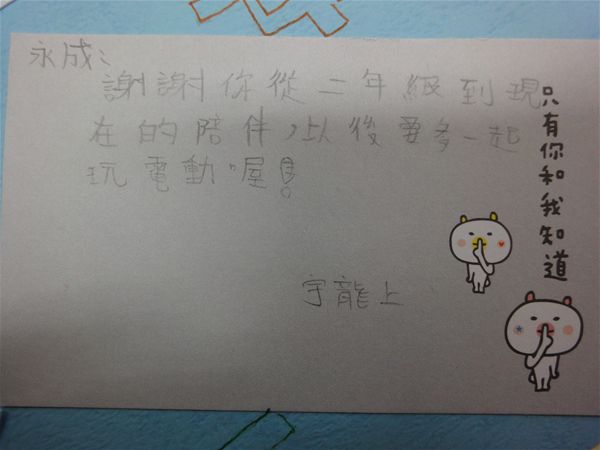 永成:
謝謝你從二年級到現
在的陪伴,以後要多一起
玩電動喔!
宇龍上
只有你和我知道